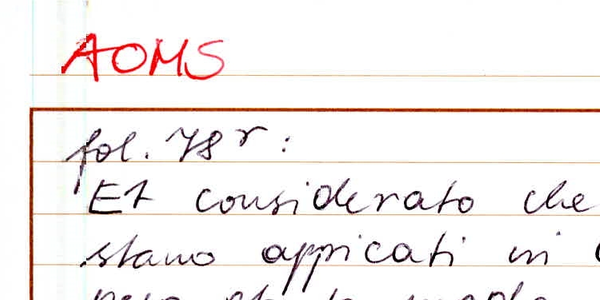 AOMS
fol. 78 r :
Et considerato che
stano appicati in